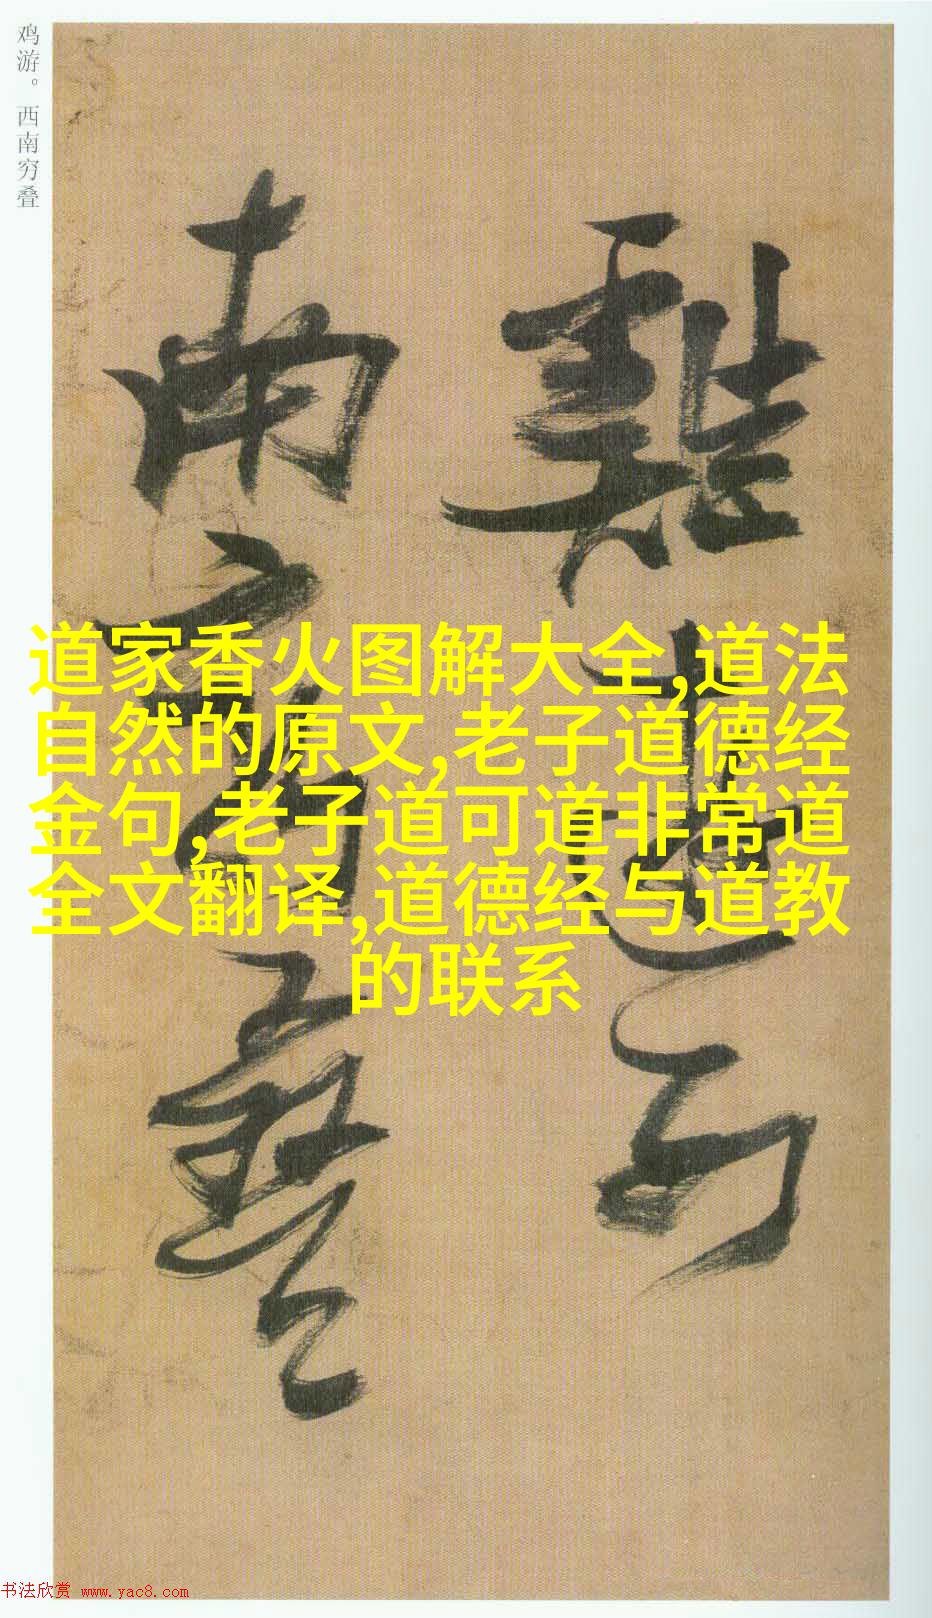 鸡游。西南穷叠
雞遊西
南窮疊
道家香火图解大全,道法
自然的原文,老子道德经
金句,老子道可道非常道
全文翻译,道德经与道教
的联系
书法欣赏 www.yac8.com